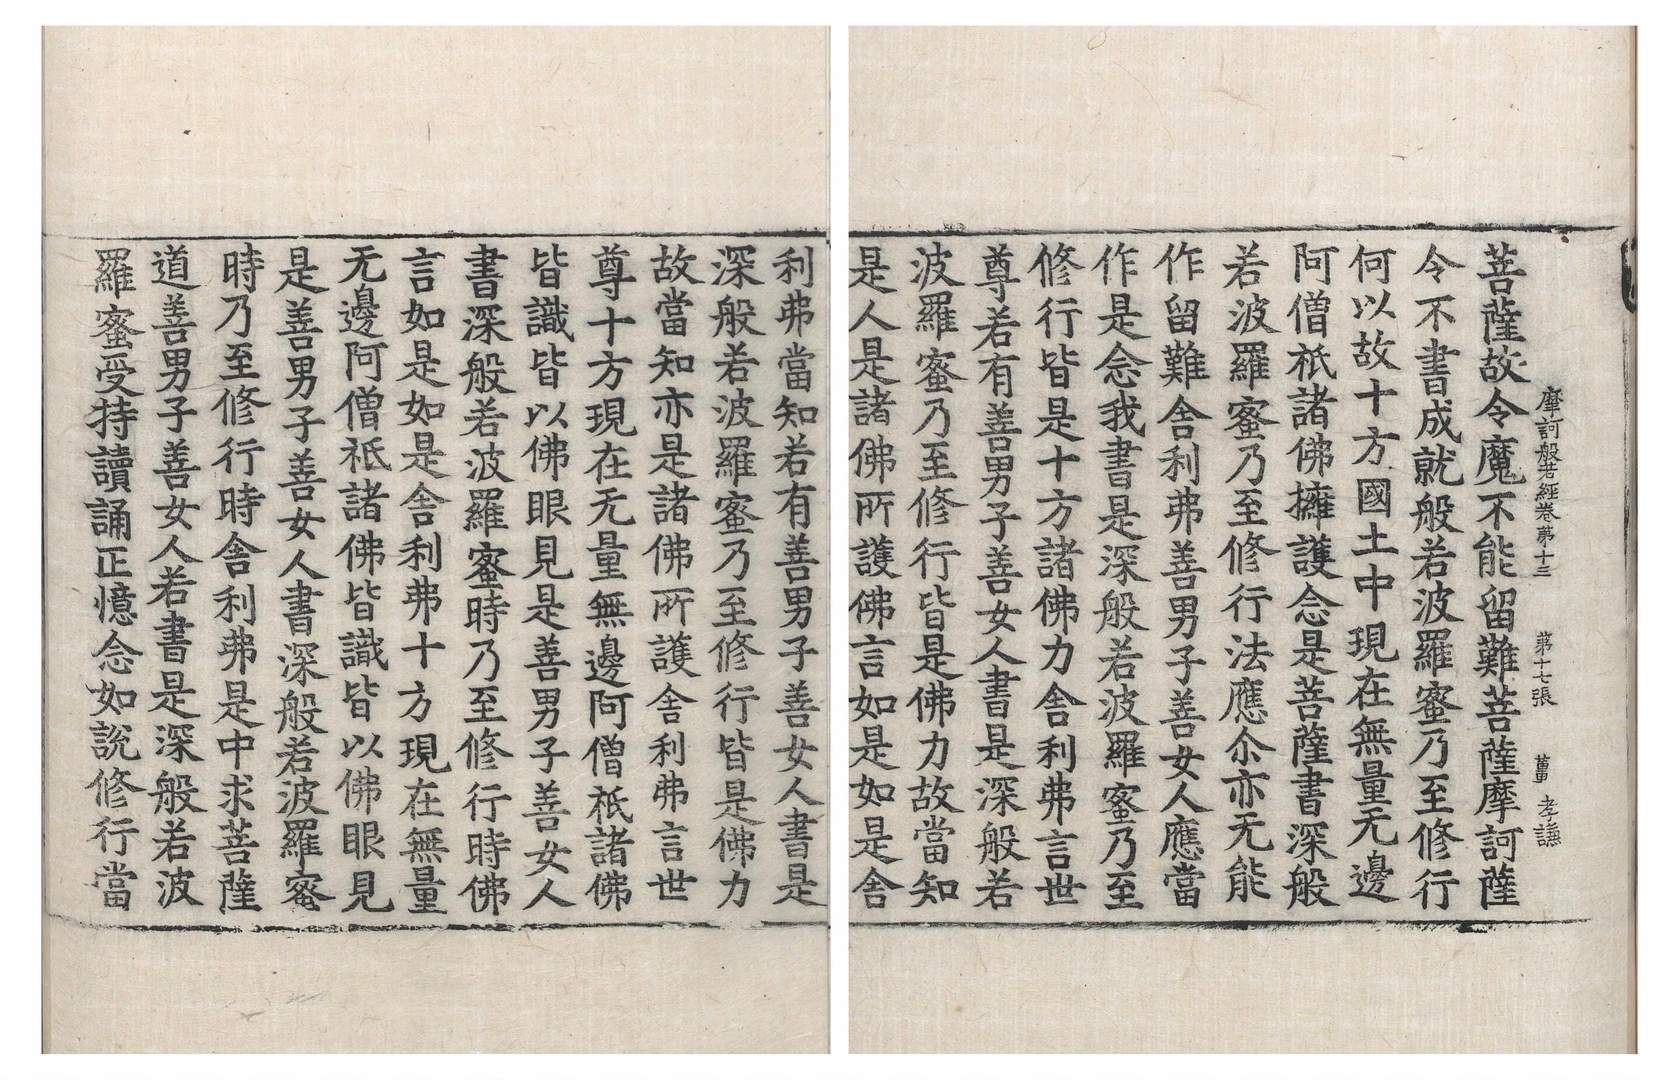 摩訶般若經卷第十三 第十七張 萬 孝謙
菩薩故令魔不能留難菩薩摩訶薩
令不書成就般若波羅蜜乃至修行
何以故十方國土中現在無量无邊
阿僧祇諸佛擁護念是菩薩書深般
若波羅蜜乃至修行法應尒亦无能
作留難舍利弗善男子善女人應當
作是念我書是深般若波羅蜜乃至
修行皆是十方諸佛力舍利弗言世
尊若有善男子善女人書是深般若
波羅蜜乃至修行皆是佛力故當知
是人是諸佛所護佛言如是如是舍
利弗當知若有善男子善女人書是
深般若波羅蜜乃至修行皆是佛力
故當知亦是諸佛所護舍利弗言世
尊十方現在无量無邊阿僧祇諸佛
皆識皆以佛眼見是善男子善女人
書深般若波羅蜜時乃至修行時佛
言如是如是舍利弗十方現在無量
无邊阿僧祇諸佛皆識皆以佛眼見
是善男子善女人書深般若波羅蜜
時乃至修行時舍利弗是中求菩薩
道善男子善女人若書是深般若波
羅蜜受持讀誦正憶念如說修行當